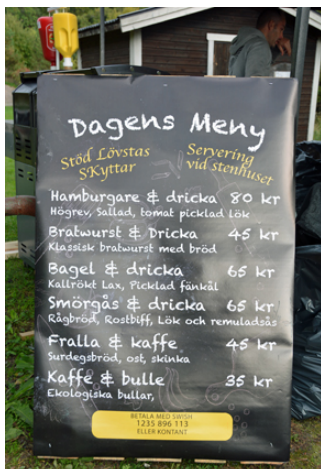 Dagens Meny
Stöd Lövstas
Skyttar
Servering
vid stenhuset
Hamburgare & dricka 80 kr
Högrev, Sallad, tomat picklad lök
Bratwurst & Dricka 45 kr
Klassisk bratwurst med bröd
Bagel & dricka 65 kr
Kallrökt Lax, Picklad fänkål
Smörgås & dricka 65 kr
Rågbröd, Rostbiff, Lök och remuladsås
Fralla & kaffe 45 kr
Surdegsbröd, ost, skinka
Kaffe & bulle 35 kr
Ekologiska bullar,
BETALA MED SWISH
1235 896 113
ELLER KONTANT